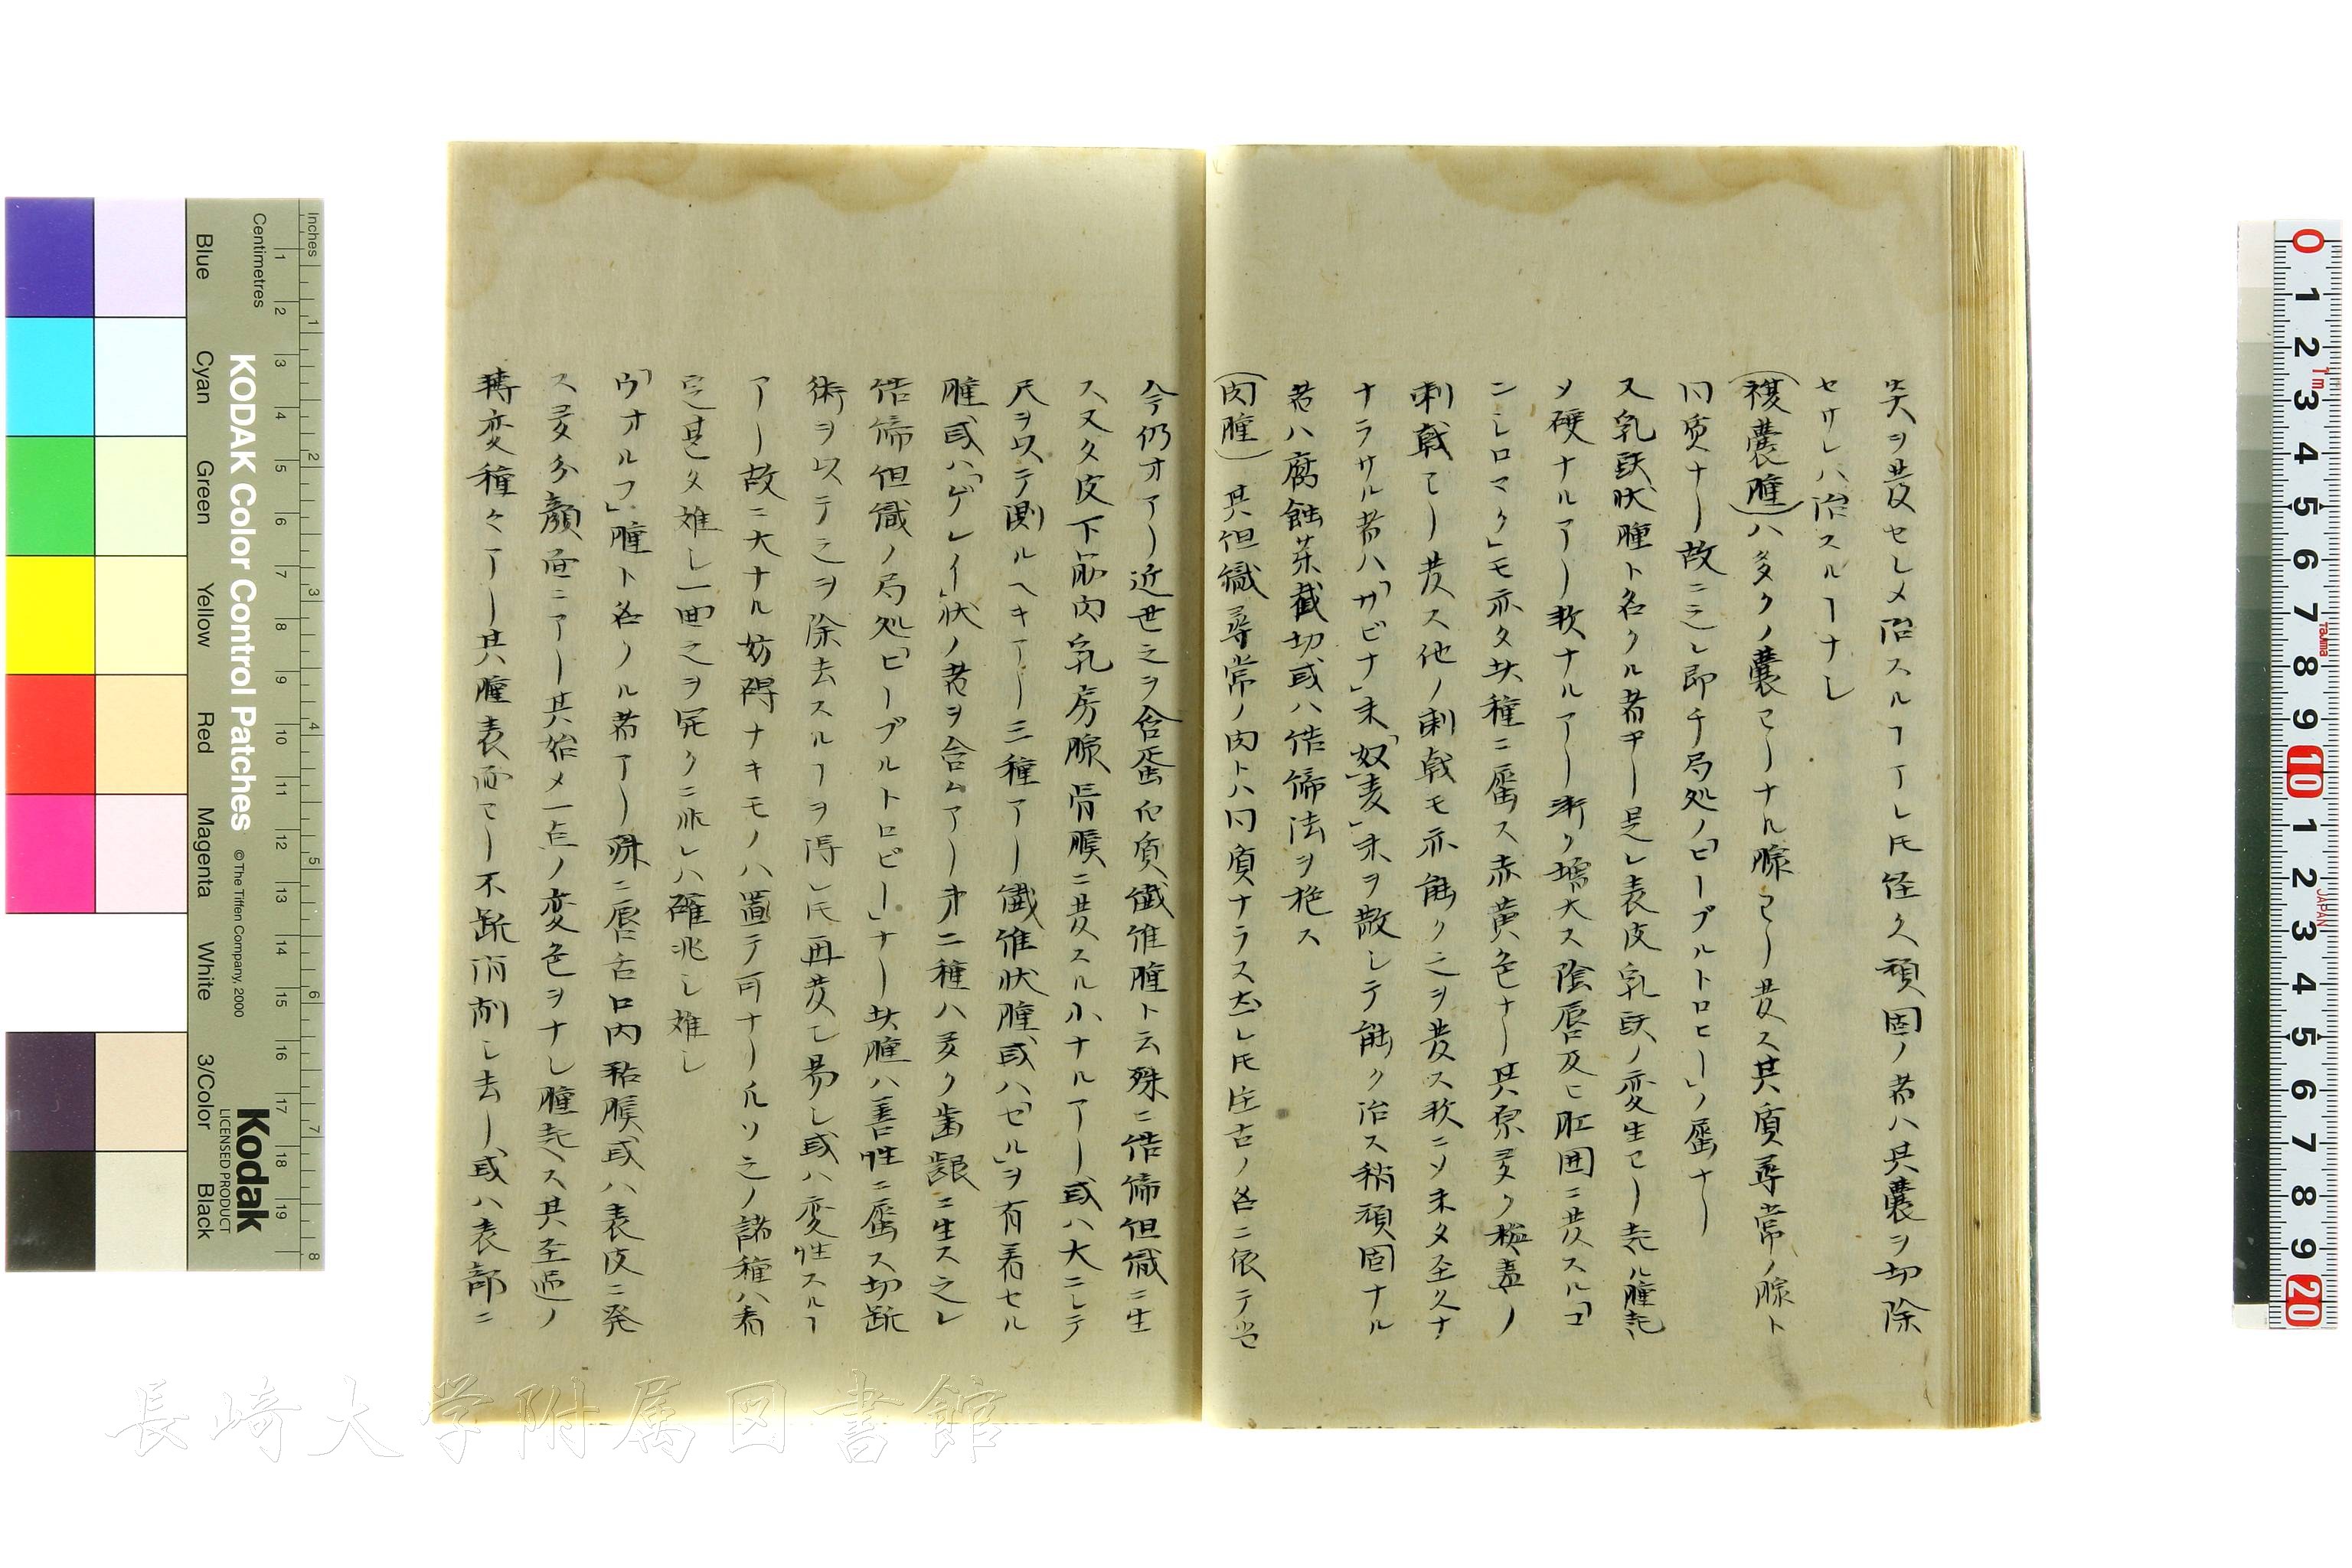 炎ヲ発セシメ治スルヿアレ𪜈経久頑固ノ者ハ其嚢ヲ切除
セサレハ治スルヿナシ
(複嚢腫)ハ多クノ嚢ヨリナル腺ヨリ発ス其質尋常ノ腺ト
同質ナリ故ニ之レ即チ局処ノ「ヒーブルトロヒー」ノ属ナリ
又乳頭状腫ト名クル者アリ是レ表皮乳頭ノ変生ヨリ起ル腫起
ソ硬ナルアリ軟ナルアリ漸ク増大ス陰唇及ヒ肛囲ニ発スル「コ
ンシロマク」モ亦タ此種ニ属ス赤黄色ナリ其原多ク梅毒ノ
刺戟ヨリ発ス他ノ刺戟モ亦能ク之ヲ発ス軟ニソ未タ至久ナ
ナラサル者ハ「サビナ」末「奴麦」末ヲ散シテ能ク治ス稍頑固ナル
者ハ腐蝕茶截切或ハ結締法ヲ施ス
(肉腫) 其但織尋常ノ肉トハ同質ナラス然レ𪜈往古ノ名ニ依テ尚
今仍オアリ近世之ヲ含蛋白質織維腫ト云殊ニ結締但織ニ生
ス又タ皮下筋肉乳房腺骨膜ニ発スル小ナルアリ或ハ大ニシテ
尺ヲ以テ測ルヘキアリ三種アリ織維状腫或ハ「セル」ヲ有着セル
腫或ハ「ゲレイ」状ノ者ヲ含ムアリ第二種ハ多ク歯齦ニ生ス之レ
結締但織ノ局処「ヒーブルトロピー」ナリ此腫ハ善性ニ属ス切断
術ヲ以テ之ヲ除去スルヿヲ得レ𪜈再発シ易シ或ハ変性スルヿ
アリ故ニ大ナル妨碍ナキモノハ置テ可ナリ凡ソ之ノ諸種ハ着
定甚タ難シ一回之ヲ宛クニ非レハ確兆シ難シ
「ウオルフ」腫ト名ノル者アリ殊ニ唇舌口内粘膜或ハ表皮ニ発
ス多分顔面ニアリ其始メ一点ノ変色ヲナシ腫起ス其至過ノ
転変種々アリ其腫表面ヨリ不断消削シ去リ或ハ表部ニ
Inches
Centimetres
KODAK Color Control Patches
© The Tiffen Company, 2000
Kodak
LICENSED PRODUCT
Blue
Cyan
Green
Yellow
Red
Magenta
White
3/Color
Black
長崎大学附属図書館